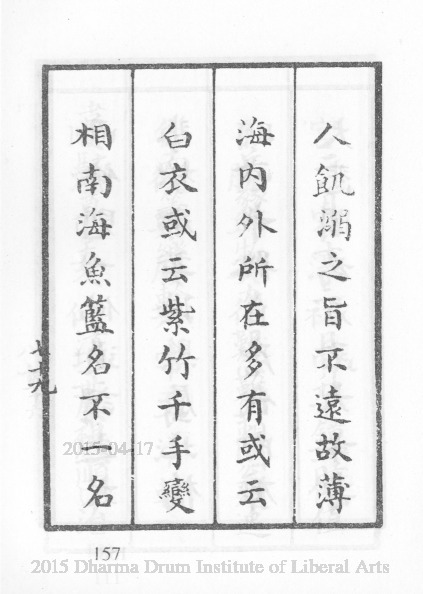 人飢溺之旨不遠故薄
海内外所在多有或云
白衣或云紫竹千手變
相南海魚籃名不一名
七十九
2015-04-17
157
2015 Dharma Drum Institute of Liberal Arts